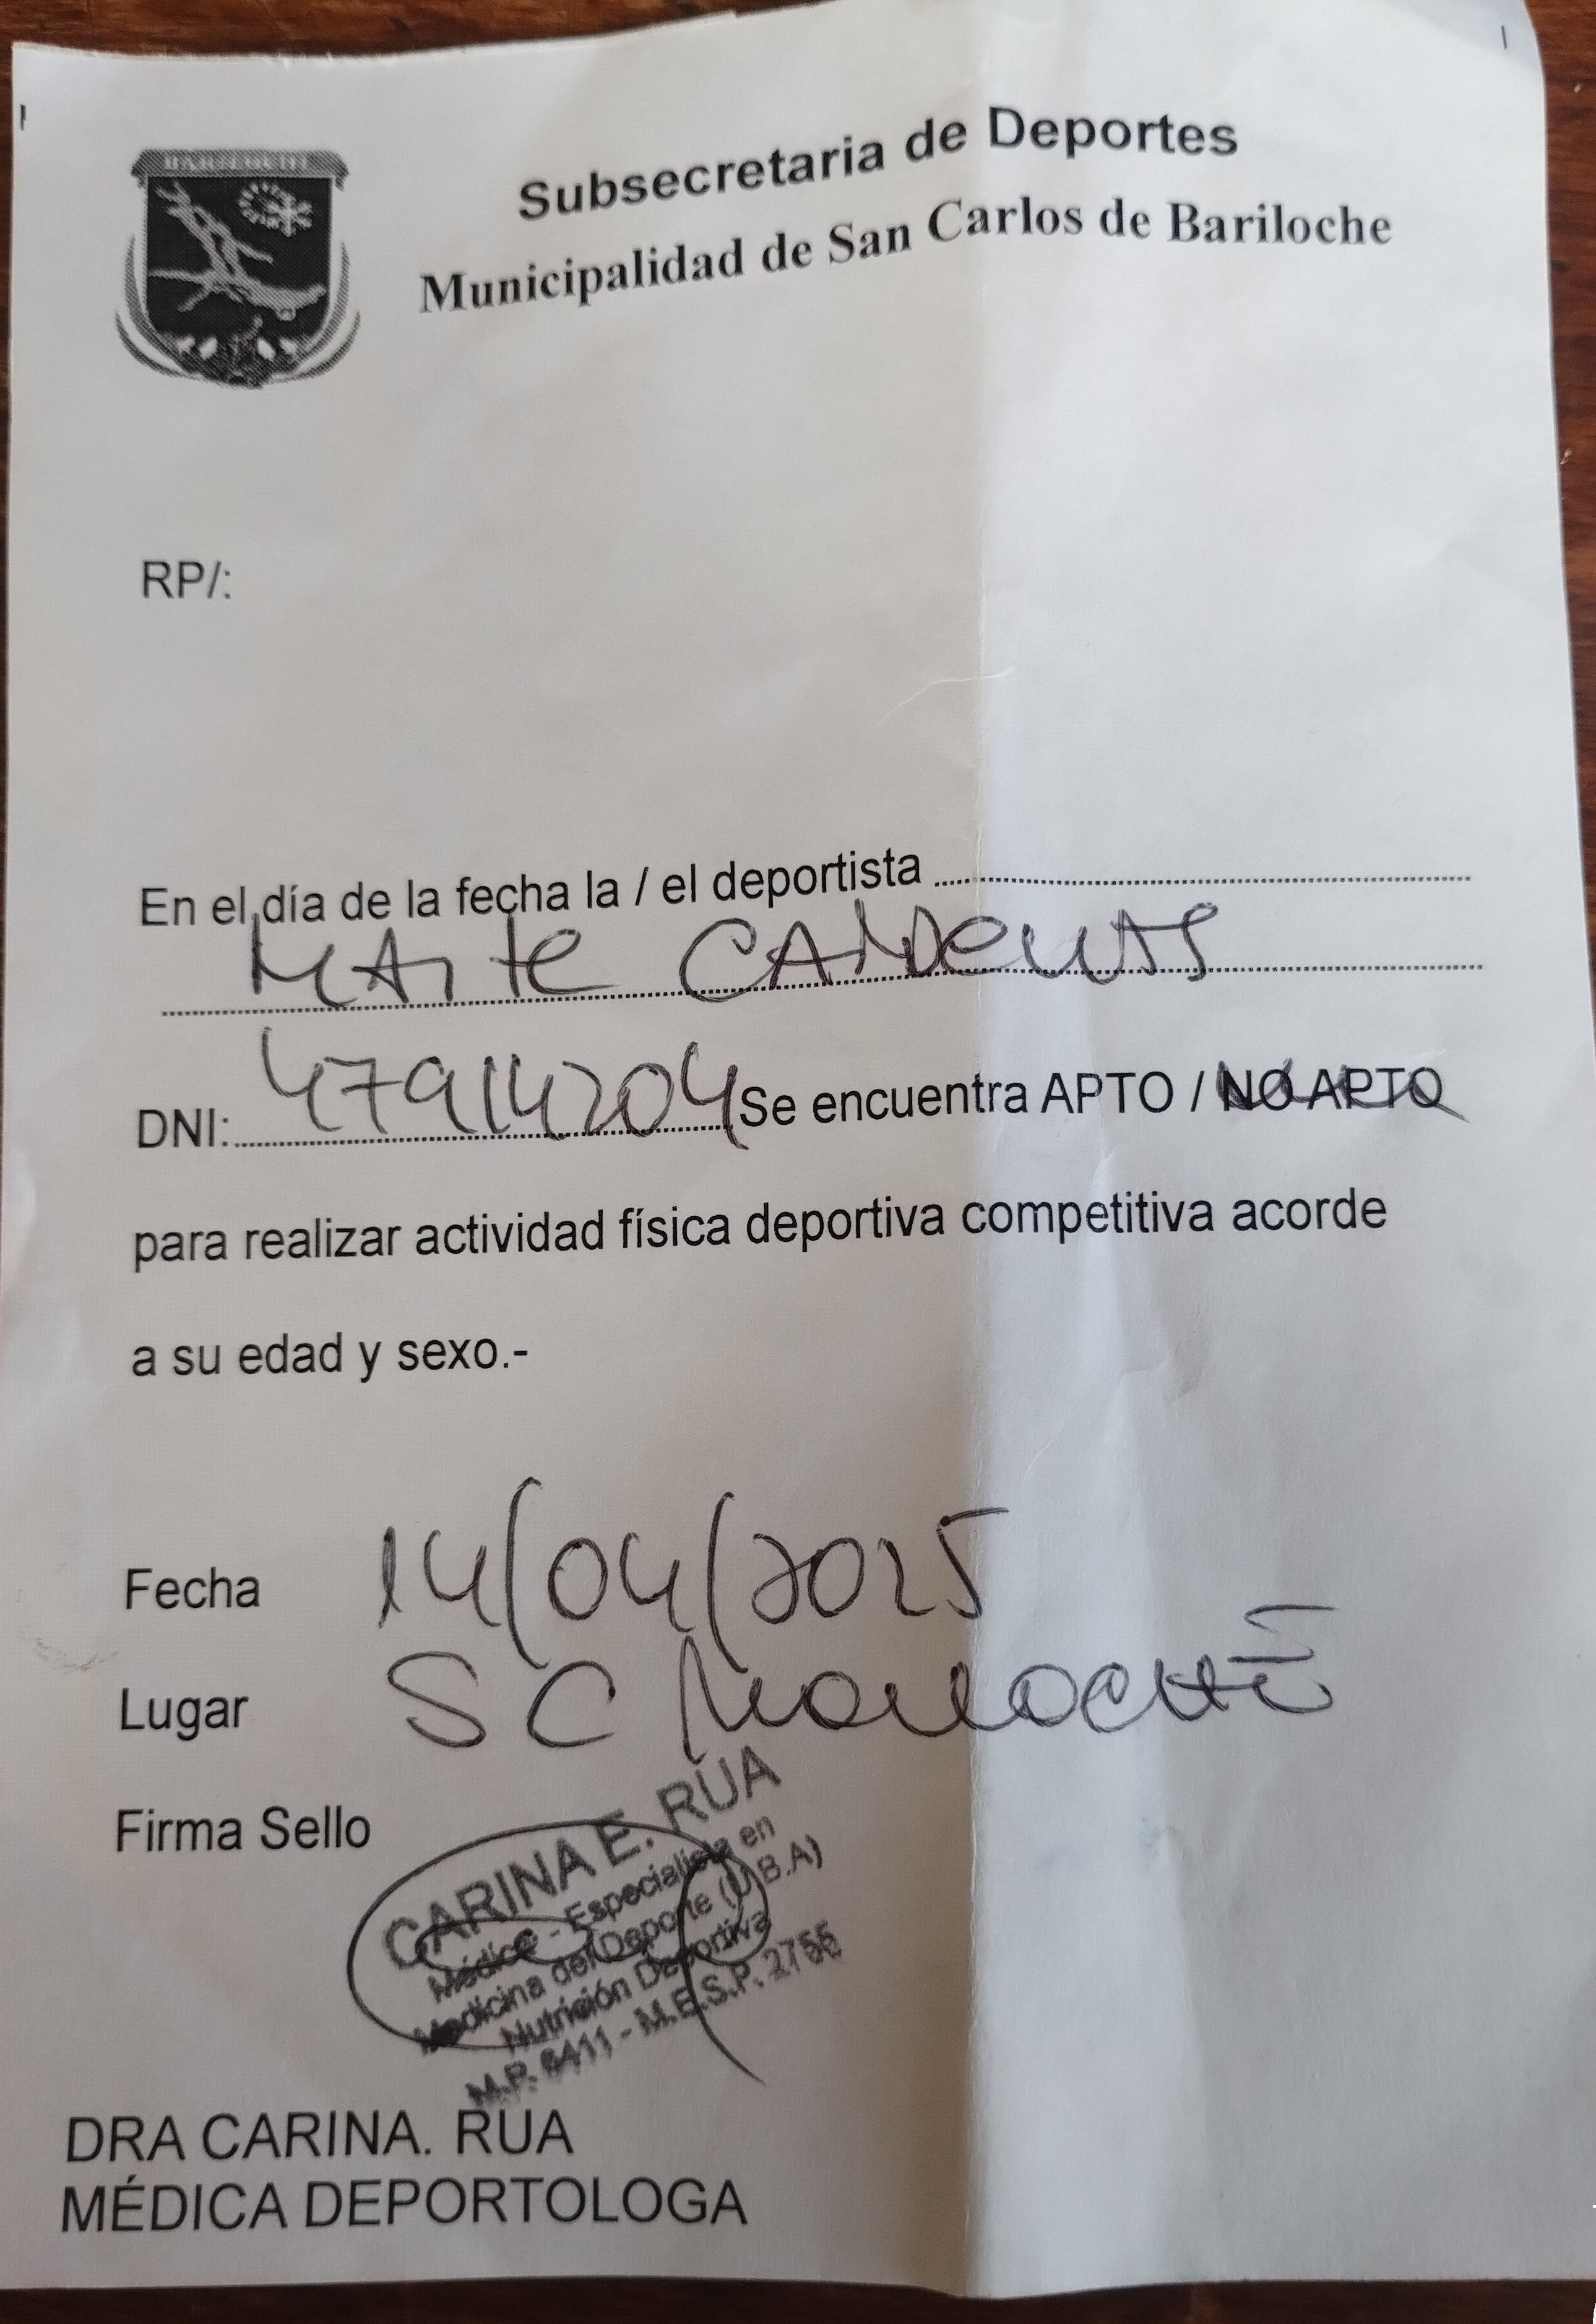 BARILOCHE
Subsecretaria de Deportes
Municipalidad de San Carlos de Bariloche
RP/:
En el día de la fecha la / el deportista
MAITE
DNI: 47914204 Se encuentra APTO / NO APTO
para realizar actividad física deportiva competitiva acorde
a su edad y sexo.-
Fecha 14/04/2025
Lugar SC Bariloche
Firma Sello
CARINA E. RUA
Médica - Especialista en
Medicina del Deporte (U.B.A)
Nutrición Deportiva
M.P. 6411 - M.E.S.P. 2755
DRA CARINA. RUA
MÉDICA DEPORTOLOGA